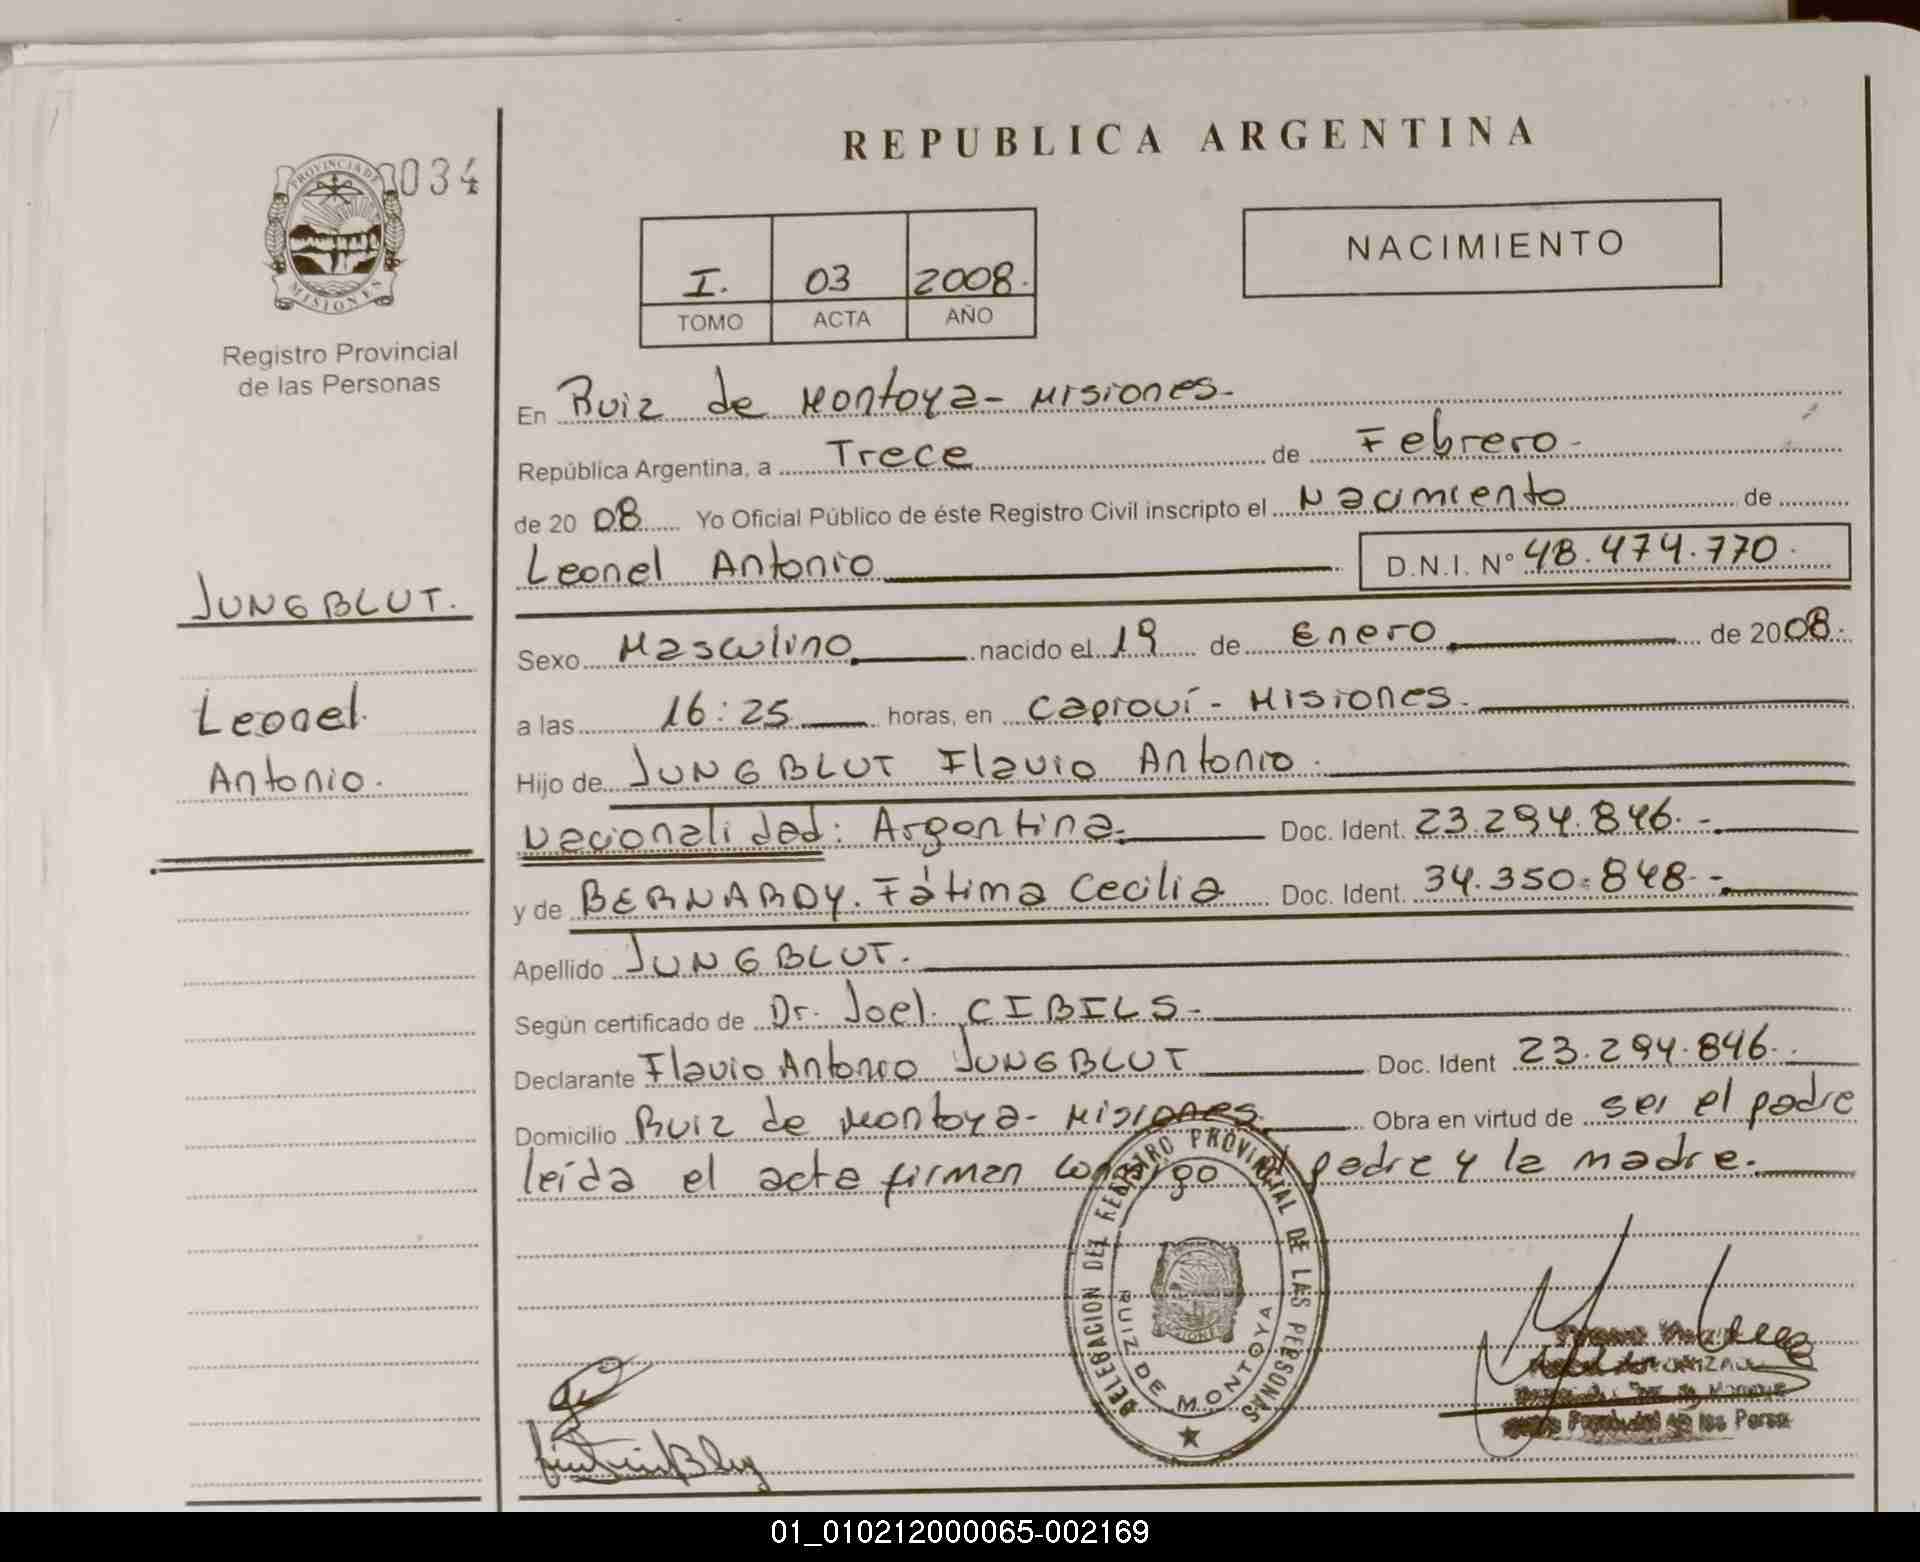 034
PROVINCIA DE
MISIONES
Registro Provincial
de las Personas
JUNGBLUT.
Leonel
Antonio.
REPUBLICA ARGENTINA
I. 03 2008.
TOMO ACTA AÑO
NACIMIENTO
En Ruiz de Montoya - Misiones.
República Argentina, a Trece de Febrero -
de 20 08 Yo Oficial Público de éste Registro Civil inscripto el Nacimiento de
Leonel Antonio D.N.I. N° 48.474.770.
Sexo Masculino nacido el 19 de Enero de 2008.
a las 16:25 horas, en Capioví - Misiones.
Hijo de JUNGBLUT Flavio Antonio.
Nacionalidad: Argentina. Doc. Ident. 23.294.846.-
y de BERNARDY. Fátima Cecilia Doc. Ident. 34.350.848.-
Apellido JUNGBLUT.
Según certificado de Dr. Joel. CIBILS -
Declarante Flavio Antonio JUNGBLUT Doc. Ident 23.294.846.
Domicilio Ruiz de Montoya - Misiones. Obra en virtud de ser el padre
leída el acta firman conmigo el padre y la madre.
DELEGACION DEL REGISTRO PROVINCIAL DE LAS PERSONAS
RUIZ DE MONTOYA
01_010212000065-002169